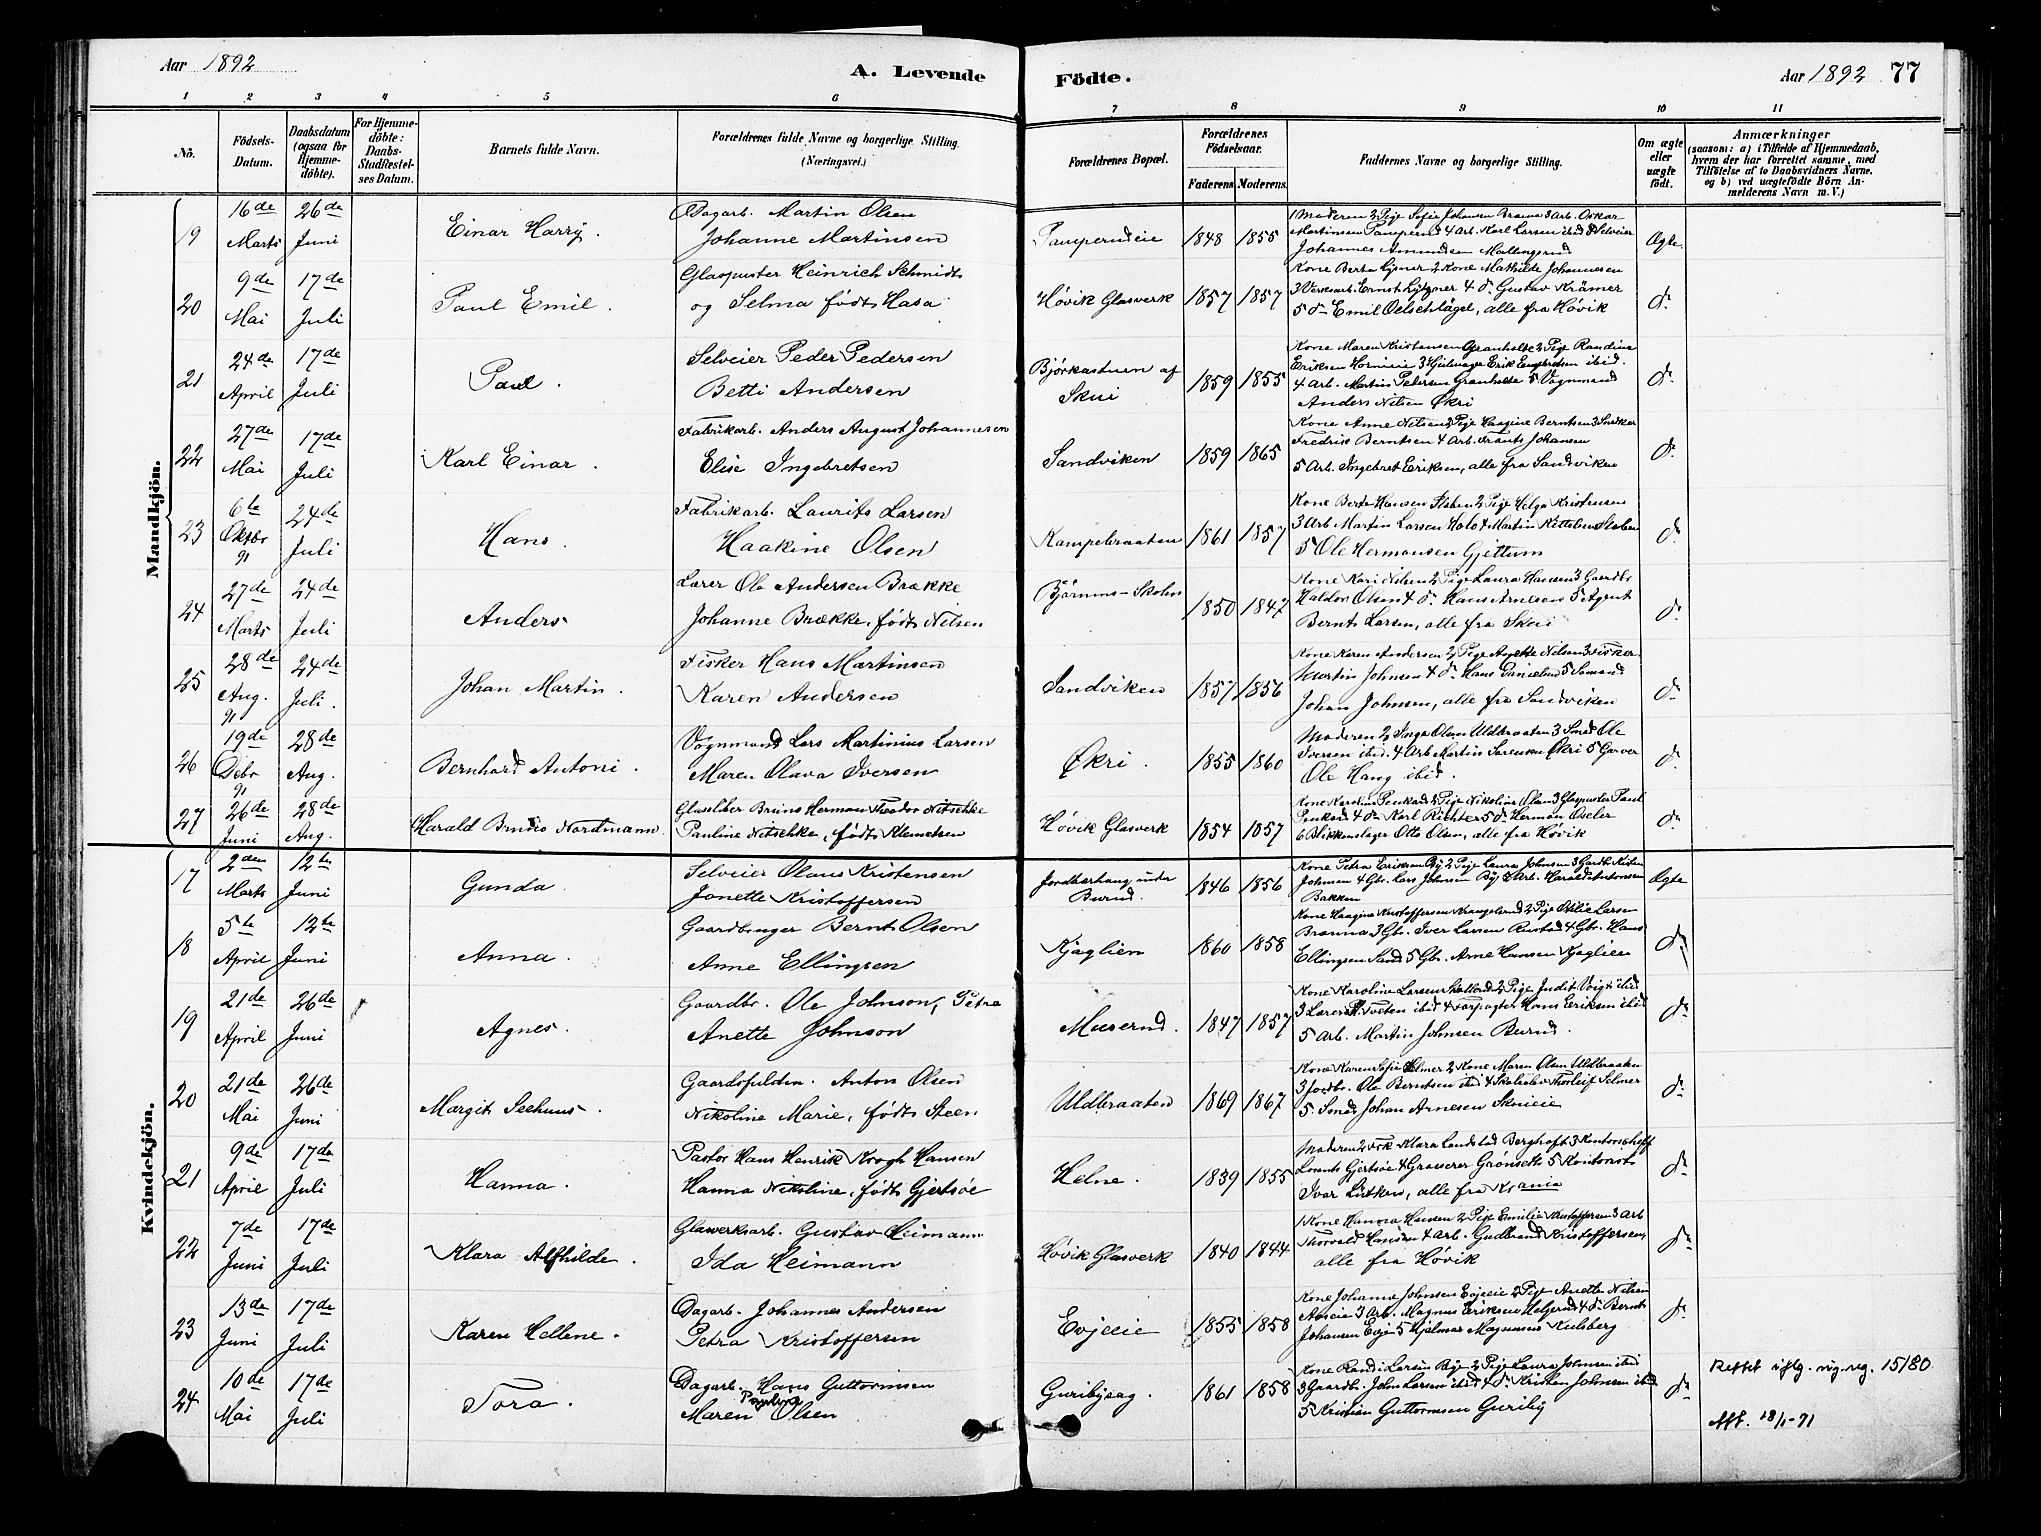 Aar 1892
A. Levende Födte.
Aar 1892 77
1 2 3 4 5 6 7 8 9 10 11
No.
Födsels-Datum.
Daabsdatum (ogsaa for Hjemme-döbte).
For Hjemme-döbte: Daabs-Stadfæstel-ses Datum.
Barnets fulde Navn.
Forældrenes fulde Navne og borgerlige Stilling. (Næringsvei.)
Forældrenes Bopæl.
Forældrenes Födselsaar.
Faderens. Moderens.
Faddernes Navne og borgerlige Stilling.
Om ægte eller uægte födt.
Anmærkninger
(saasom: a) i Tilfælde af Hjemmedaab,
hvem der har forrettet samme, med
Tilföielse af to Daabsvidners Navne,
og b) ved uægtefödte Börn An-
melderens Navn m. V.)
Mandkjön.
19 16de Marts 26de Juni Einar Harry. Dagarb. Martin Olsen
Johanne Martinsen Pamperudeie 1848 1855 1 Moderen 2 Pige Sofie Johansen 3 Arb. Oskar
Martinsen Pamperud 4 Arb. Karl Larsen ibid 5 Selveier
Johannes Amundsen Ægte.
20 9de Mai 17de Juli Paul Emil. Glaspuster Heinrich Schmidt
og Selma født Hasa Høvik Glasverk 1857 1857 Kone Berta 2 Kone Mathilde Johannesen
3 Verksarb. Ernst 4 do Gustav Krämer
5 do Emil Oelschlägel, alle fra Høvik do
21 24de April 17de Juli Paul. Selveier Peder Pedersen
Betti Andersen Bjørkastuen af Skui 1859 1855 Kone Maren Kristensen Granholte 2 Pige Randine
Eriksen 3 Erik ibid.
4 Arb. Martin Petersen Granholte 5 Vognmand
Anders Nilsen Økri do
22 27de Mai 17de Juli Karl Einar. Fabrikarb. Anders August Johannesen
Elise Ingebretsen Sandviken 1859 1865 Kone Anne Nilsen 2 Pige Haagine Berntsen 3 Snekker
Fredrik Berntsen 4 Arb. Frants Johansen
5 Arb. Ingebret Eriksen, alle fra Sandviken do
23 6te Oktbr 91 24de Juli Hans. Fabrikarb. Laurits Larsen
Haakine Olsen Kampebraaten 1861 1857 Kone Berte Hansen Staben 2 Pige Helga Kristensen
3 Arb Martin Larsen 4 Martin Kittelsen Staben
5 Ole Hermansen Gjettum do
24 27de Marts 24de Juli Anders Lærer Ole Andersen Brække
Johanne Brække, født Nilsen Bjørums-Skolen 1850 1847 Kone Kari Nilsen 2 Pige Laura Hansen 3 Gaardbr
Haldor Olsen 4 do Hans Arnesen 5 Agent
Bernt Larsen, alle fra Skui do
25 28de Aug. 91 24de Juli. Johan Martin. Fisker Hans Martinsen
Karen Andersen Sandviken 1857 1856 Kone Karen Andersen 2 Pige Agette Nilsen 3 Fisker
Martin Johnsen 4 do Hans Danielsen 5 Sømand
Johan Johnsen, alle fra Sandviken do
26 19de Debr 91 28de Aug. Bernhard Antoni. Vognmand Lars Martinius Larsen
Maren Olava Iversen Økri. 1855 1860 Moderen 2 Inga Olsen Uldbraaten 3 Smed Ole
Iversen ibid. 4 Arb Martin Sørensen Økri 5 Garver
Ole Haug ibid. do
27 26de Juni 28de Aug. Harald Bruno Nordmann. Glassliber Bruno Herman Theodor Nitschke
Pauline Nitschke, født Klemetsen Høvik Glasverk 1854 1857 Kone Karoline Penkard 2 Pige Nikoline Olsen 3 Glaspuster Paul
Penkard 4 do Karl Richter 5 do Herman Oseler
6 Blikkenslager Otto Olsen, alle fra Høvik do
Kvindekjön.
17 2den Marts 12te Juni Gunda. Selveier Olaus Kristensen
Janette Kristoffersen Jordbærhaug under Burud. 1846 1856 Kone Petra Eriksen By 2 Pige Laura Johnsen 3 Gardb.
Johnsen 4 Gbr. Lars Johnsen By 5 Arb. Harald Antonsen
Bakken Ægte
18 5te April 12te Juni Anna. Gaardbruger Bernt Olsen
Anne Ellingsen Kjaglien 1860 1858 Kone Haagine Kristoffersen 2 Pige Otilie Larsen
Brænna 3 Gbr. Iver Larsen Rustad 4 Gbr. Hans
Ellingsen Sand 5 Gbr. Arne Hansen Kjaglien do
19 21de April 26de Juni Agnes. Gaardbr. Ole Johnson, Petra
Anette Johnson Muserud. 1847 1857 Kone Karoline Larsen 2 Pige Judit Voigt ibid
3 Lærer Tveten ibid 4 Forpagter Hans Eriksen ibid
5 Arb. Martin Johnsen Burud. do
20 21de Mai 26de Juni Margit Seehuus. Gaardsfuldm. Anton Olsen
Nikoline Marie, født Steen Uldbraaten 1869 1867 Kone Karen Sofie Selmer 2 Kone Maren Olsen Uldbraaten
3 Jordbr. Ole Berntsen ibid 4 Thorleif Selmer
5 Smed Johan Arnesen Skuieie do
21 9de April 17de Juli Hanna. Pastor Hans Henrik Krogh Hansen
Hanna Nikoline, født Gjertsøe Helne. 1839 1855 Moderen 2 Frk Klara Landstad Berghoft 3 Kontorchef
Lorents Gjertsøe 4 Graverer Grønseth 5 Kontorist
Ivar Lütken, alle fra Krania do
22 7de Juni 17de Juli Klara Alfhilde. Glasverksarb. Gustav Heimann
Ida Heimann Høvik Glasverk 1840 1844 1 Kone Hanna Hansen 2 Pige Emilie Kristoffersen 3 Arb
Thorvald Hansen 4 Arb. Gudbrand Kristoffersen,
alle fra Høvik do
23 13de Juni 17de Juli Karen Hellene. Dagarb. Johannes Andersen
Petra Kristoffersen Evjeeie 1855 1858 Kone Johanne Johnsen Evjeeie 2 Pige Anette Nilsen
3 Arb. Magnus Eriksen 4 do Bernt
Johansen Evje 5 Hjelmar Magnussen Kulsberg do
24 10de Mai 17de Juli Tora. Dagarb. Hans Guttormsen
Maren Paulina Olsen Guribysag. 1861 1858 Kone Randi Larsen Bye 2 Pige Laura Johnsen ibid
3 Gaardbr. John Larsen ibid 4 do Kristian Johnsen ibid
5 Kristian Guttormsen Guriby do Rettet iflg. vig.reg. 15/80
Aft. 18/1-71